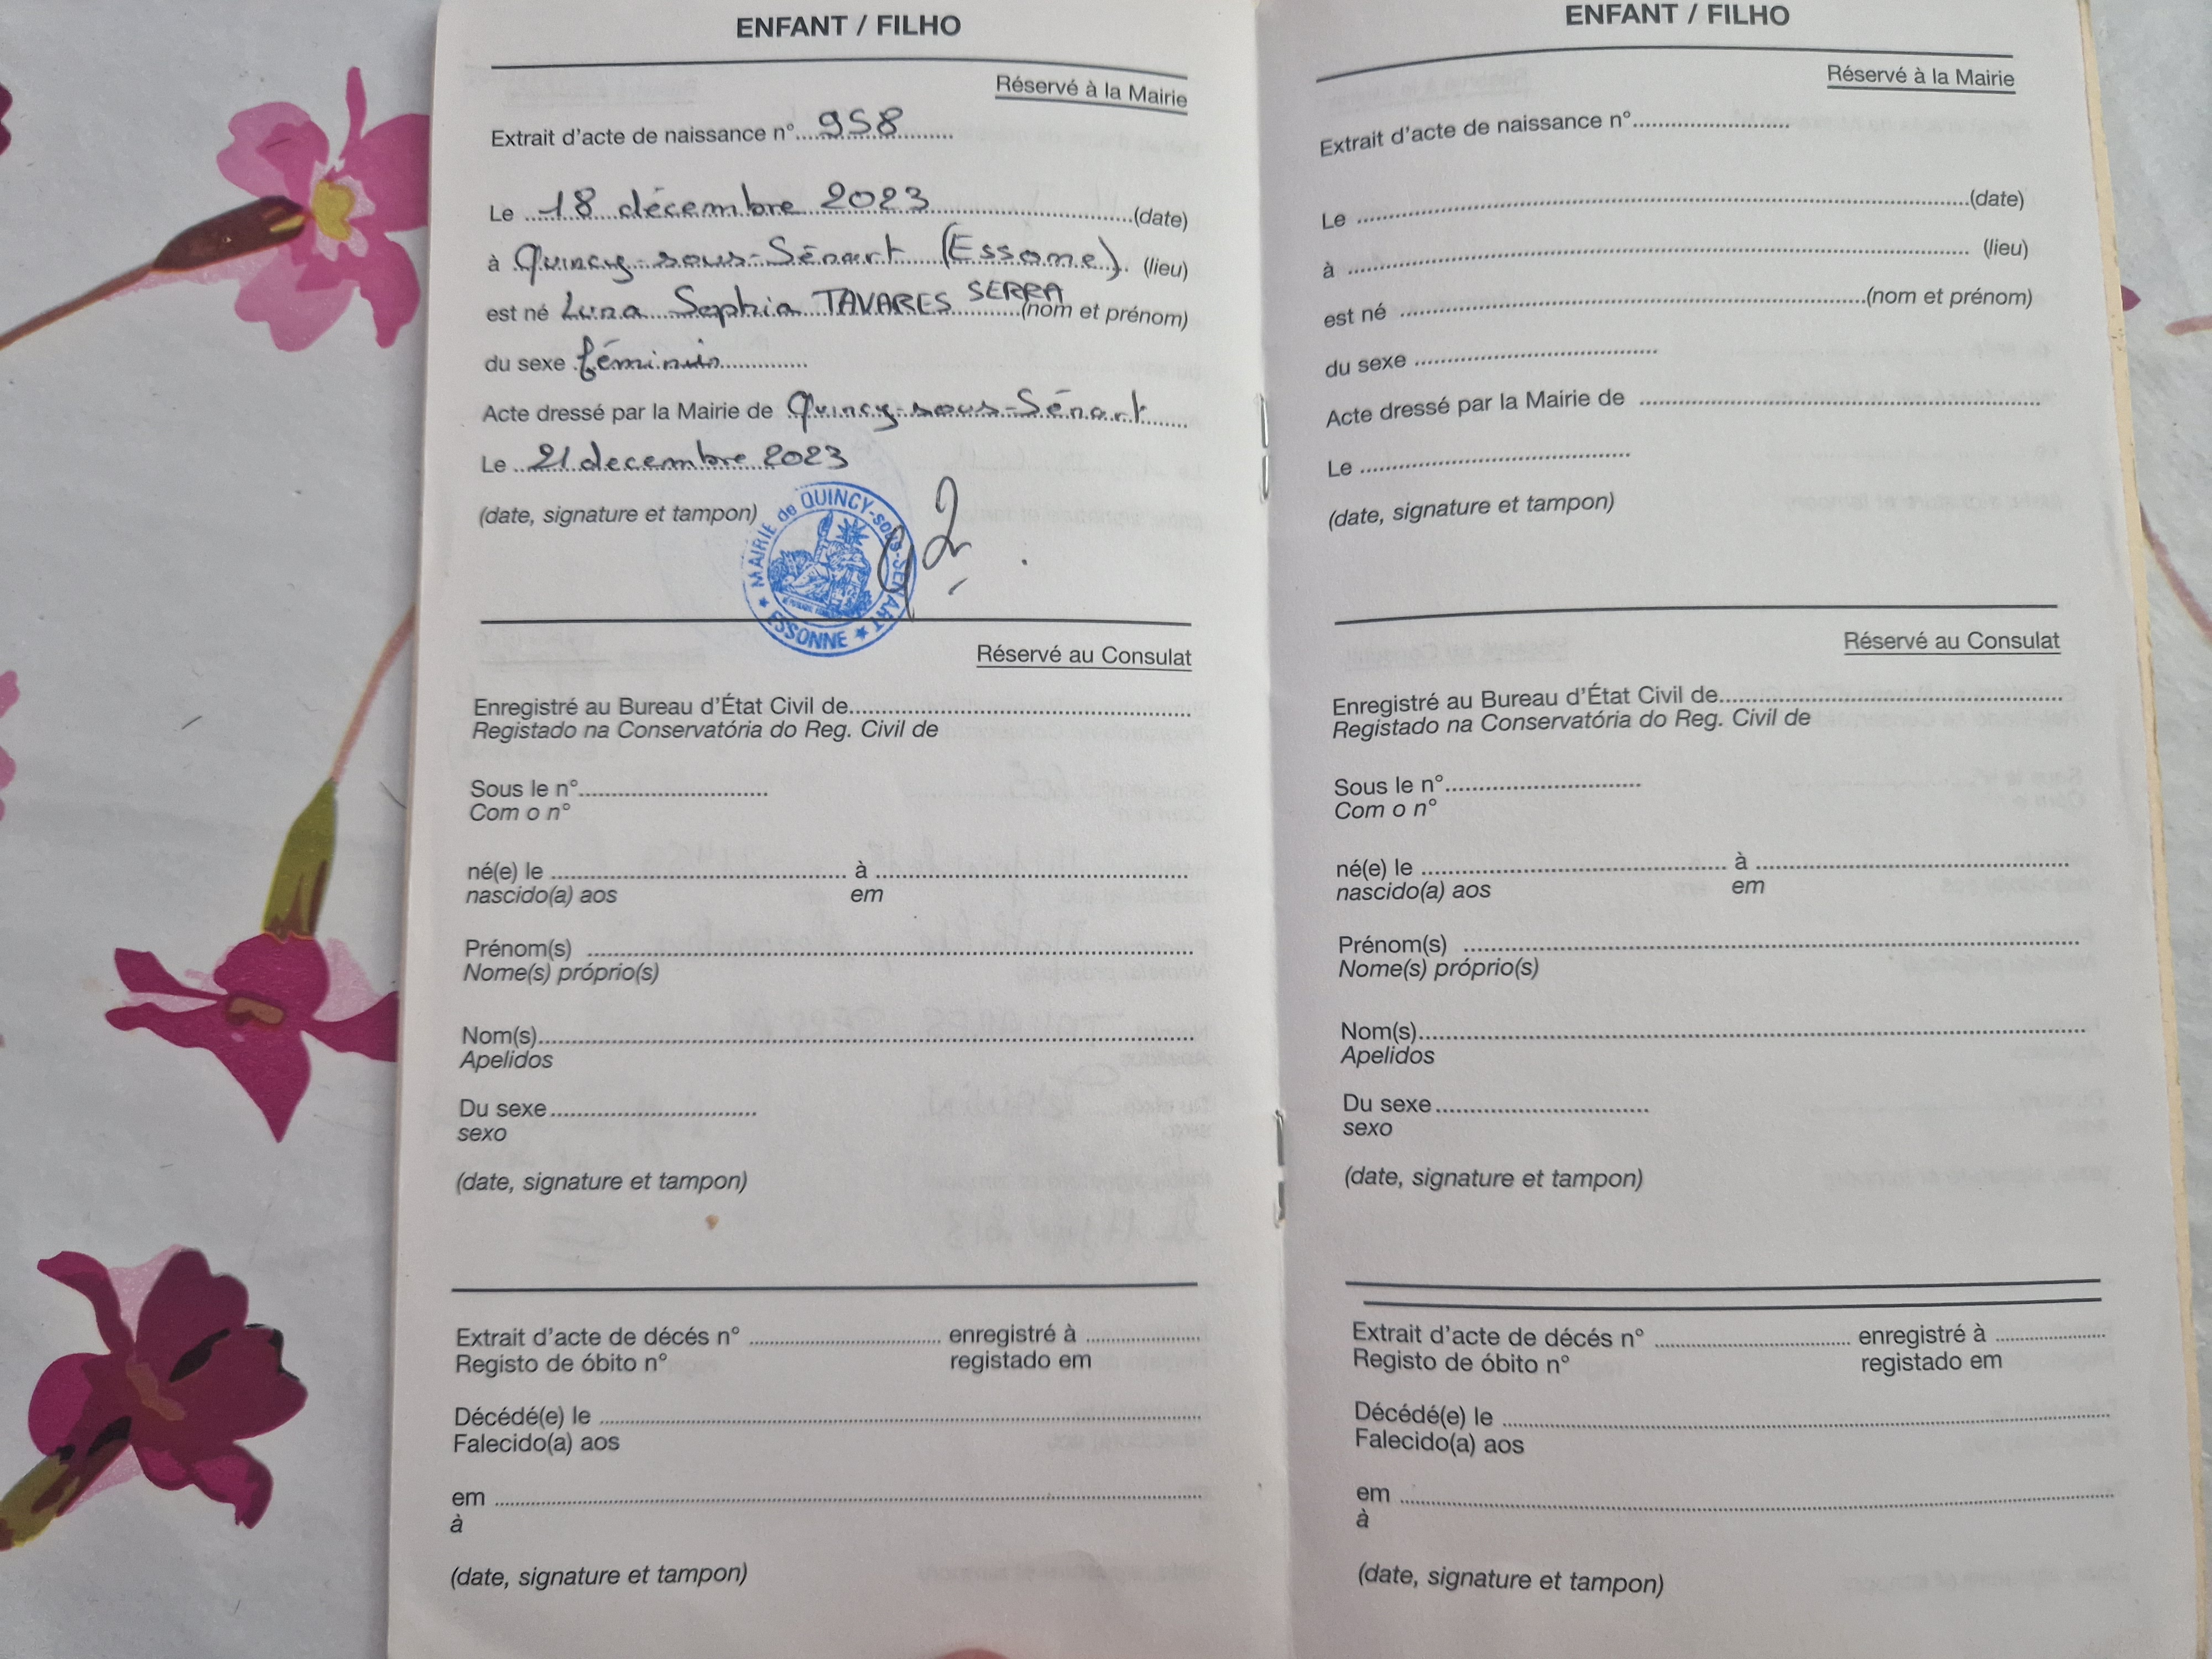 ENFANT / FILHO
Réservé à la Mairie
Extrait d'acte de naissance n°...958...
Le ...18 décembre 2023...(date)
à Quincy-sous-Sénart (Essonne). (lieu)
est né Luna Sophia TAVARES SERRA...(nom et prénom)
du sexe féminin...
Acte dressé par la Mairie de Quincy-sous-Sénart...
Le ..21 decembre 2023
(date, signature et tampon)
MAIRIE de QUINCY-sous-SENART
★ ESSONNE ★
Réservé au Consulat
Enregistré au Bureau d'État Civil de...
Registado na Conservatória do Reg. Civil de
Sous le n°...
Com o n°
né(e) le ... à ...
nascido(a) aos em
Prénom(s) ...
Nome(s) próprio(s)
Nom(s)...
Apelidos
Du sexe...
sexo
(date, signature et tampon)
Extrait d'acte de décés n° ... enregistré à ...
Registo de óbito n° registado em
Décédé(e) le ...
Falecido(a) aos
em ...
à
(date, signature et tampon)
ENFANT / FILHO
Réservé à la Mairie
Extrait d'acte de naissance n°...
Le ...(date)
à ... (lieu)
est né ...(nom et prénom)
du sexe ...
Acte dressé par la Mairie de ...
Le ...
(date, signature et tampon)
Réservé au Consulat
Enregistré au Bureau d'État Civil de...
Registado na Conservatória do Reg. Civil de
Sous le n°...
Com o n°
né(e) le ... à ...
nascido(a) aos em
Prénom(s) ...
Nome(s) próprio(s)
Nom(s)...
Apelidos
Du sexe...
sexo
(date, signature et tampon)
Extrait d'acte de décés n° ... enregistré à ...
Registo de óbito n° registado em
Décédé(e) le ...
Falecido(a) aos
em ...
à
(date, signature et tampon)